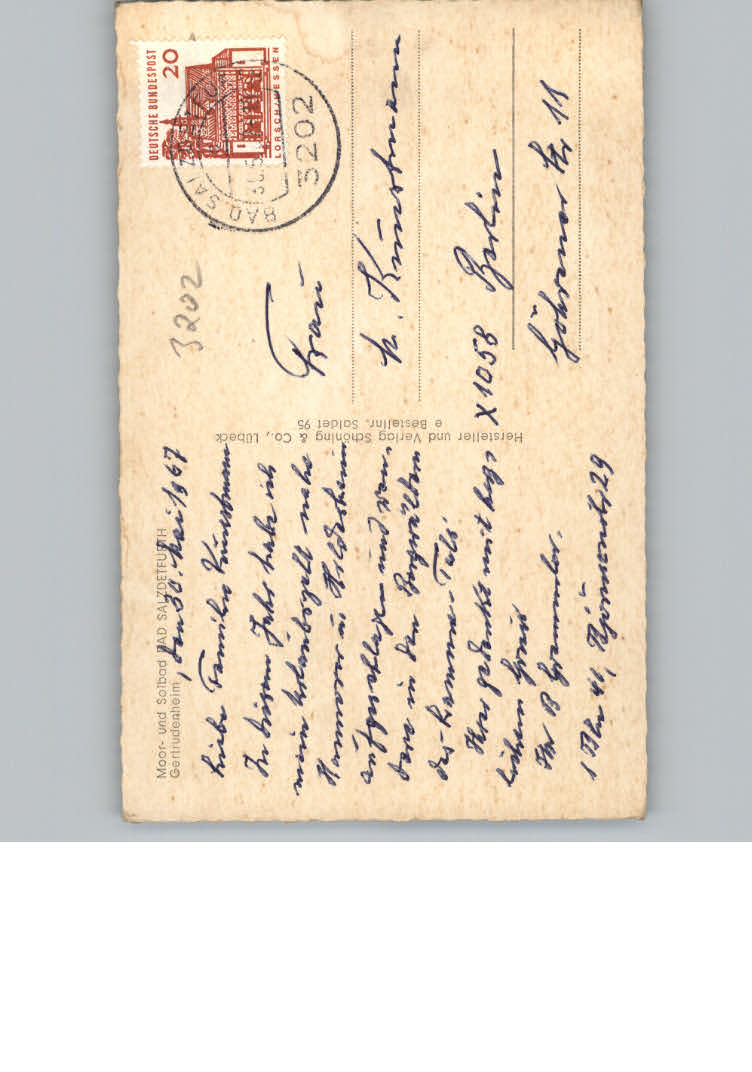 Moor- und Solbad BAD SALZDETFURTH
Gertrudenheim, den 30. Mai 1967
Liebe Familie Kunstmann
In diesem Jahr habe ich
mein Urlaubszelt nahe
Hannover u Hildesheim
aufgeschlagen und wan-
dere in den
des Lamme-Tals
Ihrer gedenke mit herz-
lichem Gruss
Ihr B
1 Bln 41, 29
Hersteller und Verlag Schöning & Co., Lübeck
Bestellnr. Saldet 95
DEUTSCHE BUNDESPOST
20
LORSCH/HESSEN
BAD SALZDETFURTH
30.5
3202
3202
Frau
K. Kunstmann
X1058 Berlin
Göhrener Str 11